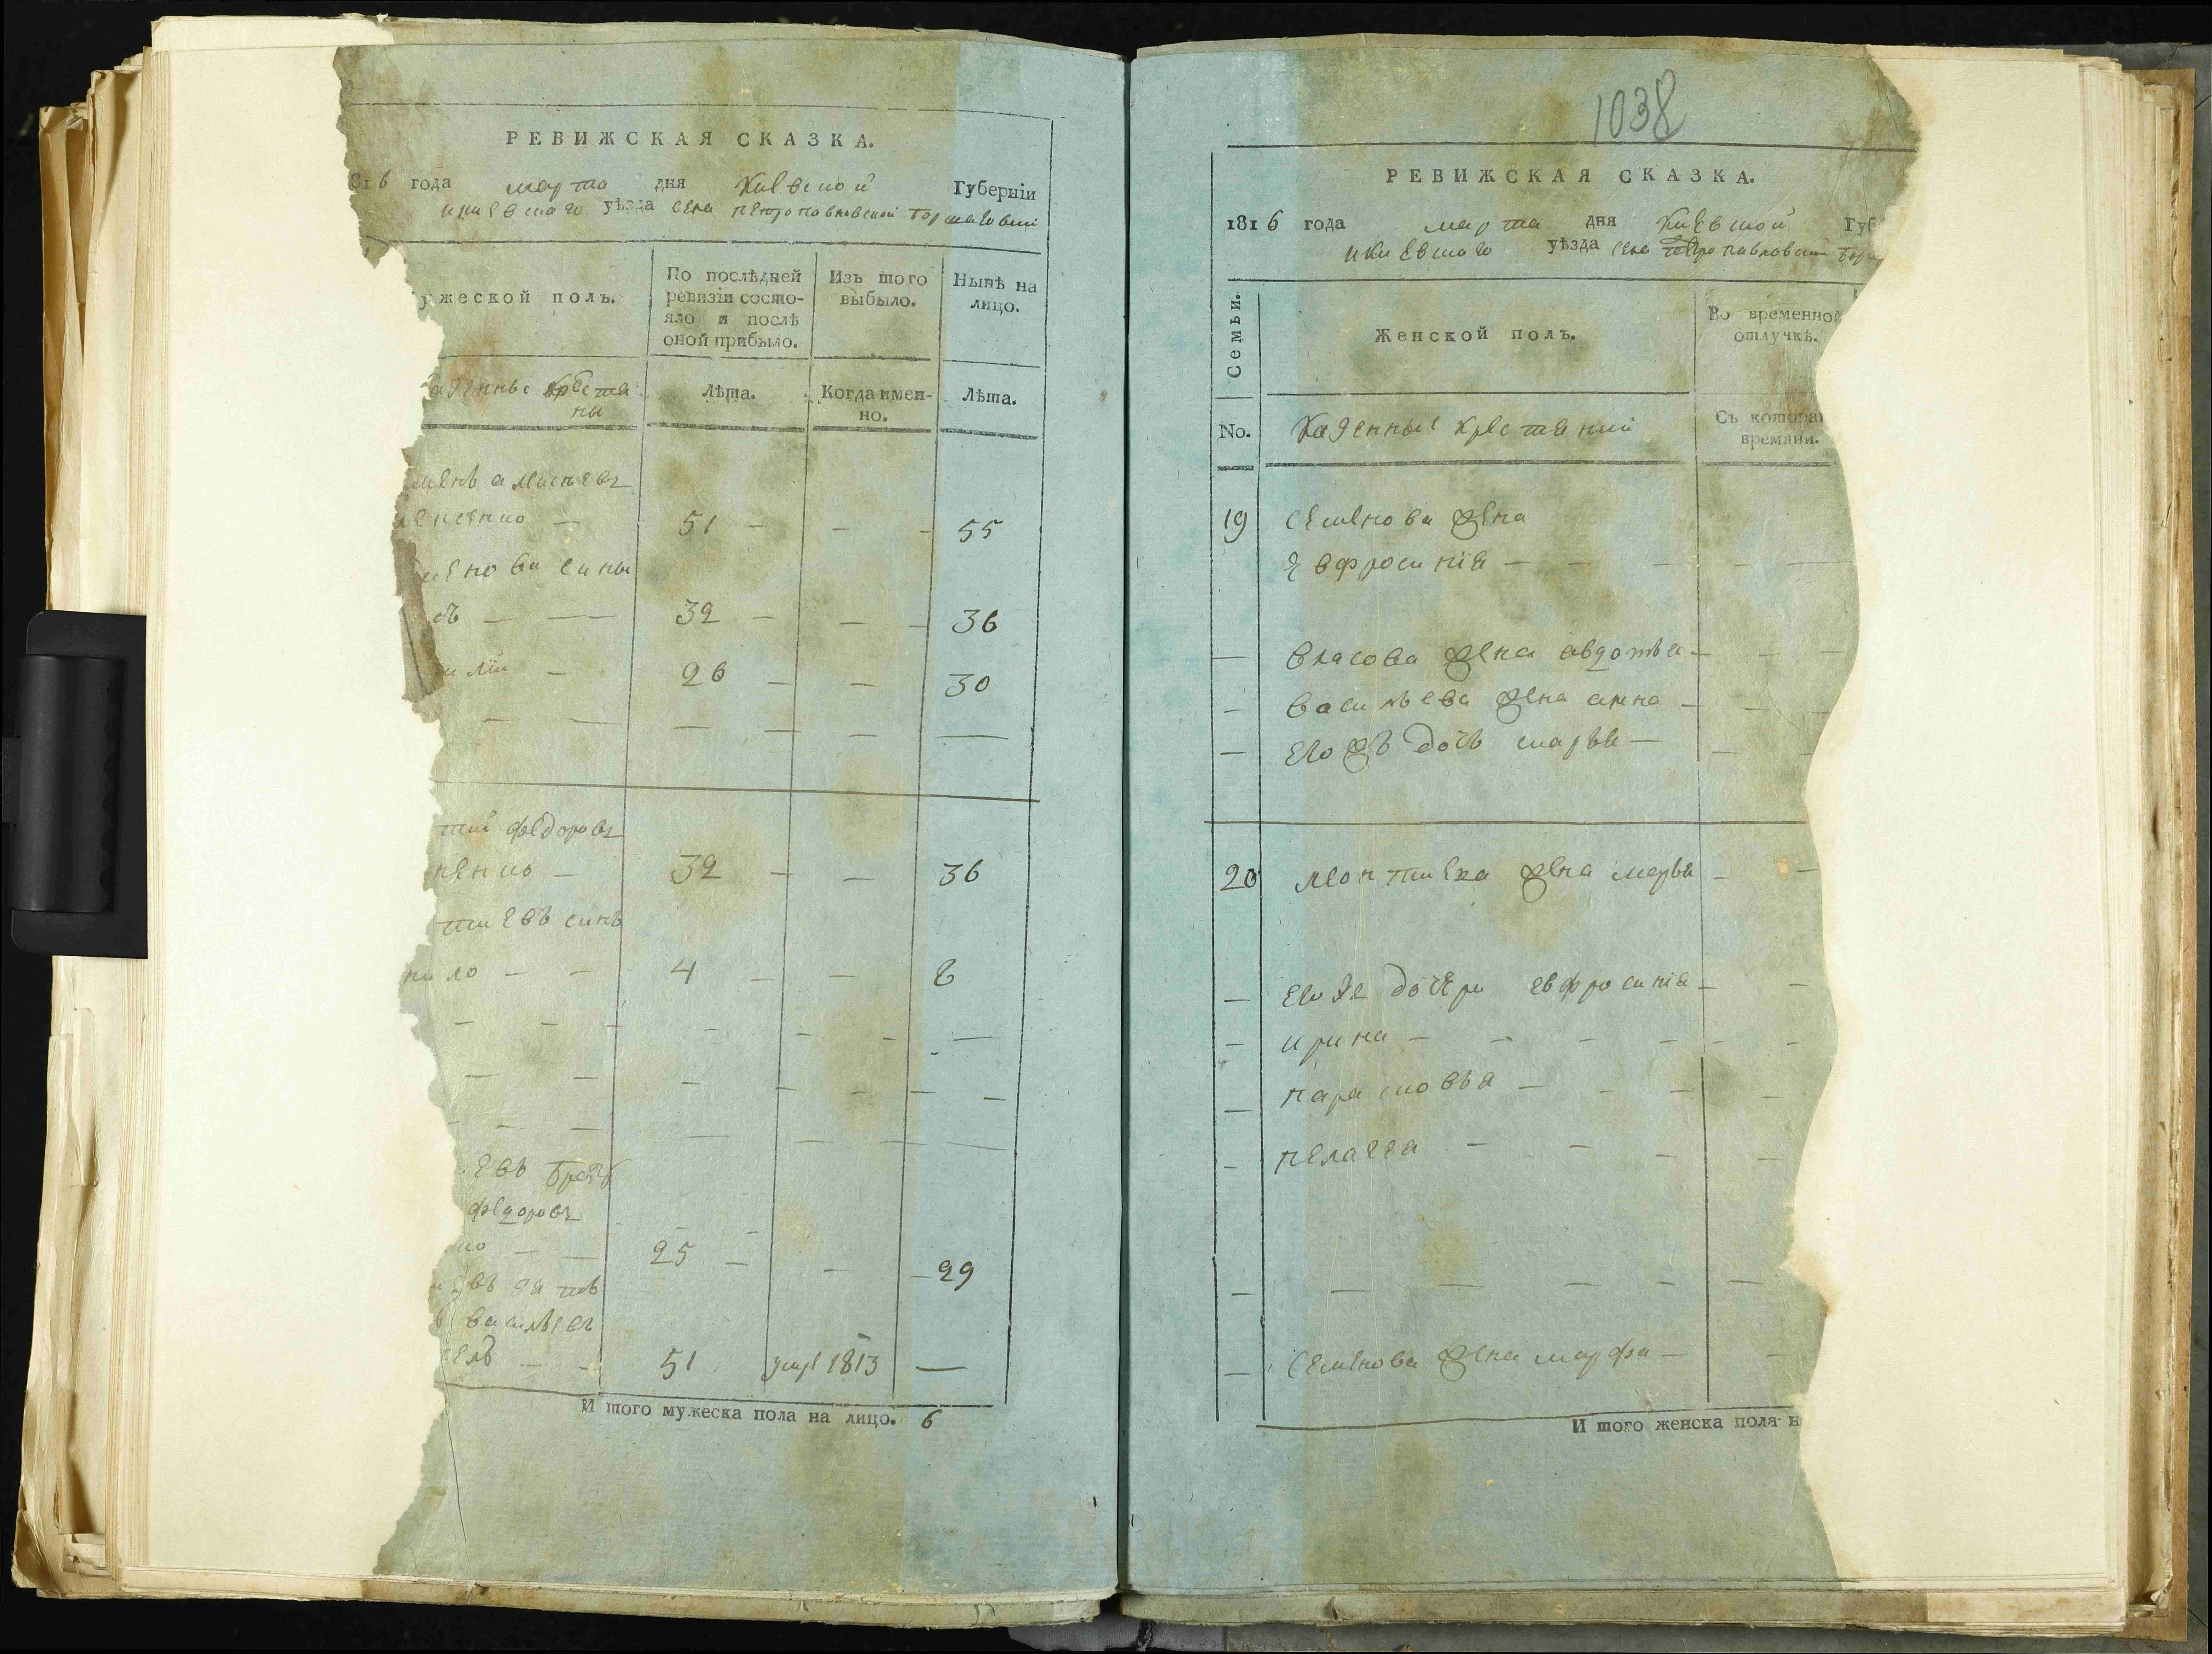 РЕВИЖСКАЯ СКАЗКА.
816 года марта дня Киевской Губернїи
икиевскаго уѣзда села петропавловской борщаговки
ужеской полъ.
По послѣдней ревизїи состо-
яло и послѣ
оной прибыло.
Изъ того
выбыло.
Нынѣ на
лицо.
азенные крестя
ны
Лѣта.
Когда имен-
но.
Лѣта.
менъ алексѣевъ
енко — 51 — — — 55
менова сины
съ — — 32 — — — 36
силїй — 26 — — 30
тїй федоровъ
ненко — 32 — — 36
тиевъ синъ
нило — — 4 — — 8
евъ братъ
федоровъ
ко — — 25 — — — 29
иевъ зять
васильевъ
ель — — 51 умре 1813 —
И того мужеска пола на лицо. 6
1038
РЕВИЖСКАЯ СКАЗКА.
1816 года марта дня Киевской Губ
икиевскаго уѣзда села петропавловской борщ
Семьи.
Женской полъ.
Во временной
отлучкѣ.
No.
Казенные крестяний
Съ котора
времяни.
19 семенова жена
евфросинїя — — — — —
— власова жена авдотья — — —
— васильева жена анна — — —
— егожъ дочь марья — — —
20 леонтиева жена марья — —
— егоже дочери евфросинїя — —
— ирина — — — — — —
— парасковья — — — —
— пелагея — — — —
— — — — —
— семенова жена марфа — —
И того женска пола н